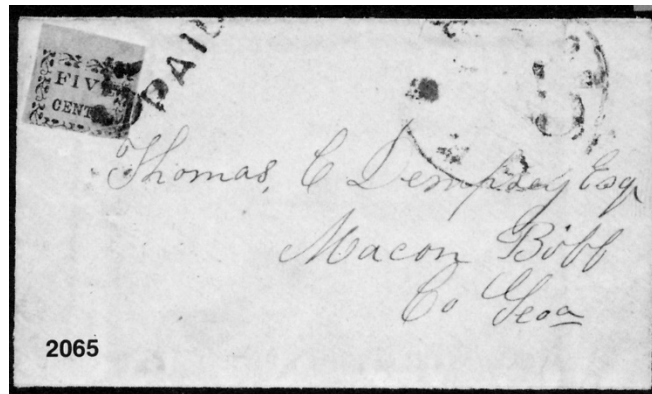 FIVE
CENTS
PAID
5
Thomas, C Dempsey Esq
Macon Bibb
Co Geoa
2065